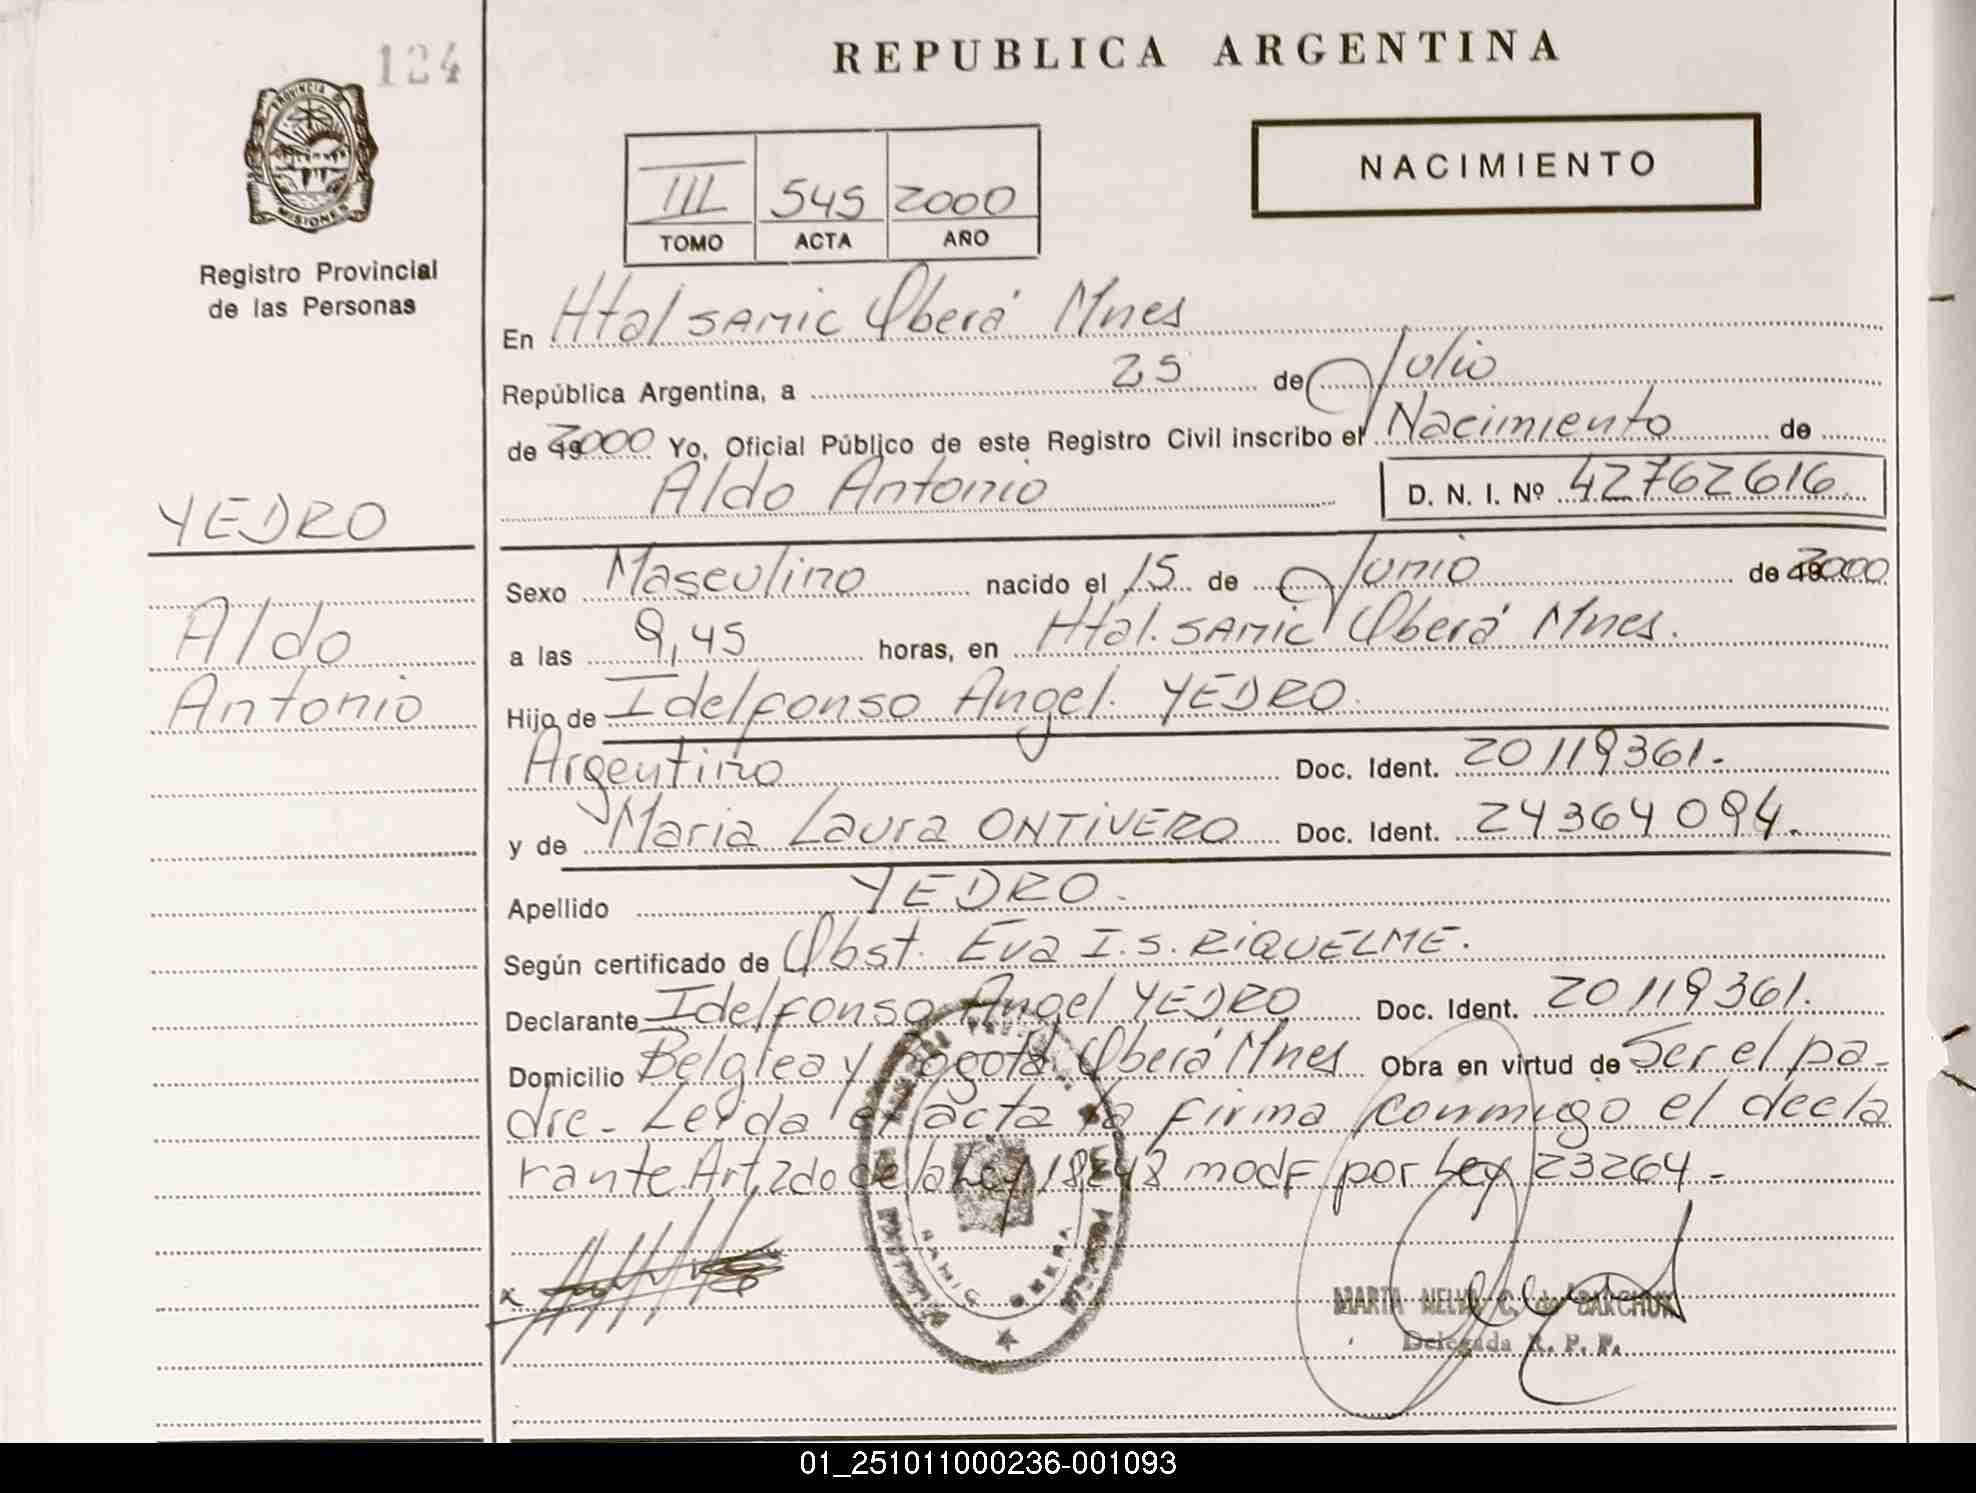 124
REPUBLICA ARGENTINA
PROVINCIA DE
MISIONES
NACIMIENTO
III 545 2000
TOMO ACTA AÑO
Registro Provincial
de las Personas
En Htal SAMIC Oberá Mnes
República Argentina, a 25 de Julio
de 192000 Yo, Oficial Público de este Registro Civil inscribo el Nacimiento de
Aldo Antonio D. N. I. Nº 42762616
YEDRO
Sexo Masculino nacido el 15 de Junio de 192000
Aldo
a las 9,45 horas, en Htal. SAMIC Oberá Mnes.
Antonio
Hijo de Idelfonso Angel. YEDRO.
Argentino Doc. Ident. 20119361.
y de Maria Laura ONTIVERO Doc. Ident. 24364094.
Apellido YEDRO.
Según certificado de Obst. Eva I.S. RIQUELME.
Declarante Idelfonso Angel YEDRO Doc. Ident. 20119361.
Domicilio Belgica y Bogotá Oberá Mnes Obra en virtud de Ser el pa-
dre - Leida el acta la firma conmigo el decla
rante Art. 2do de la Ley 18248 modf por Ley 23264 -
SAMIC OBERA
MARTA C. de
Delegada R. P. P.
01_251011000236-001093